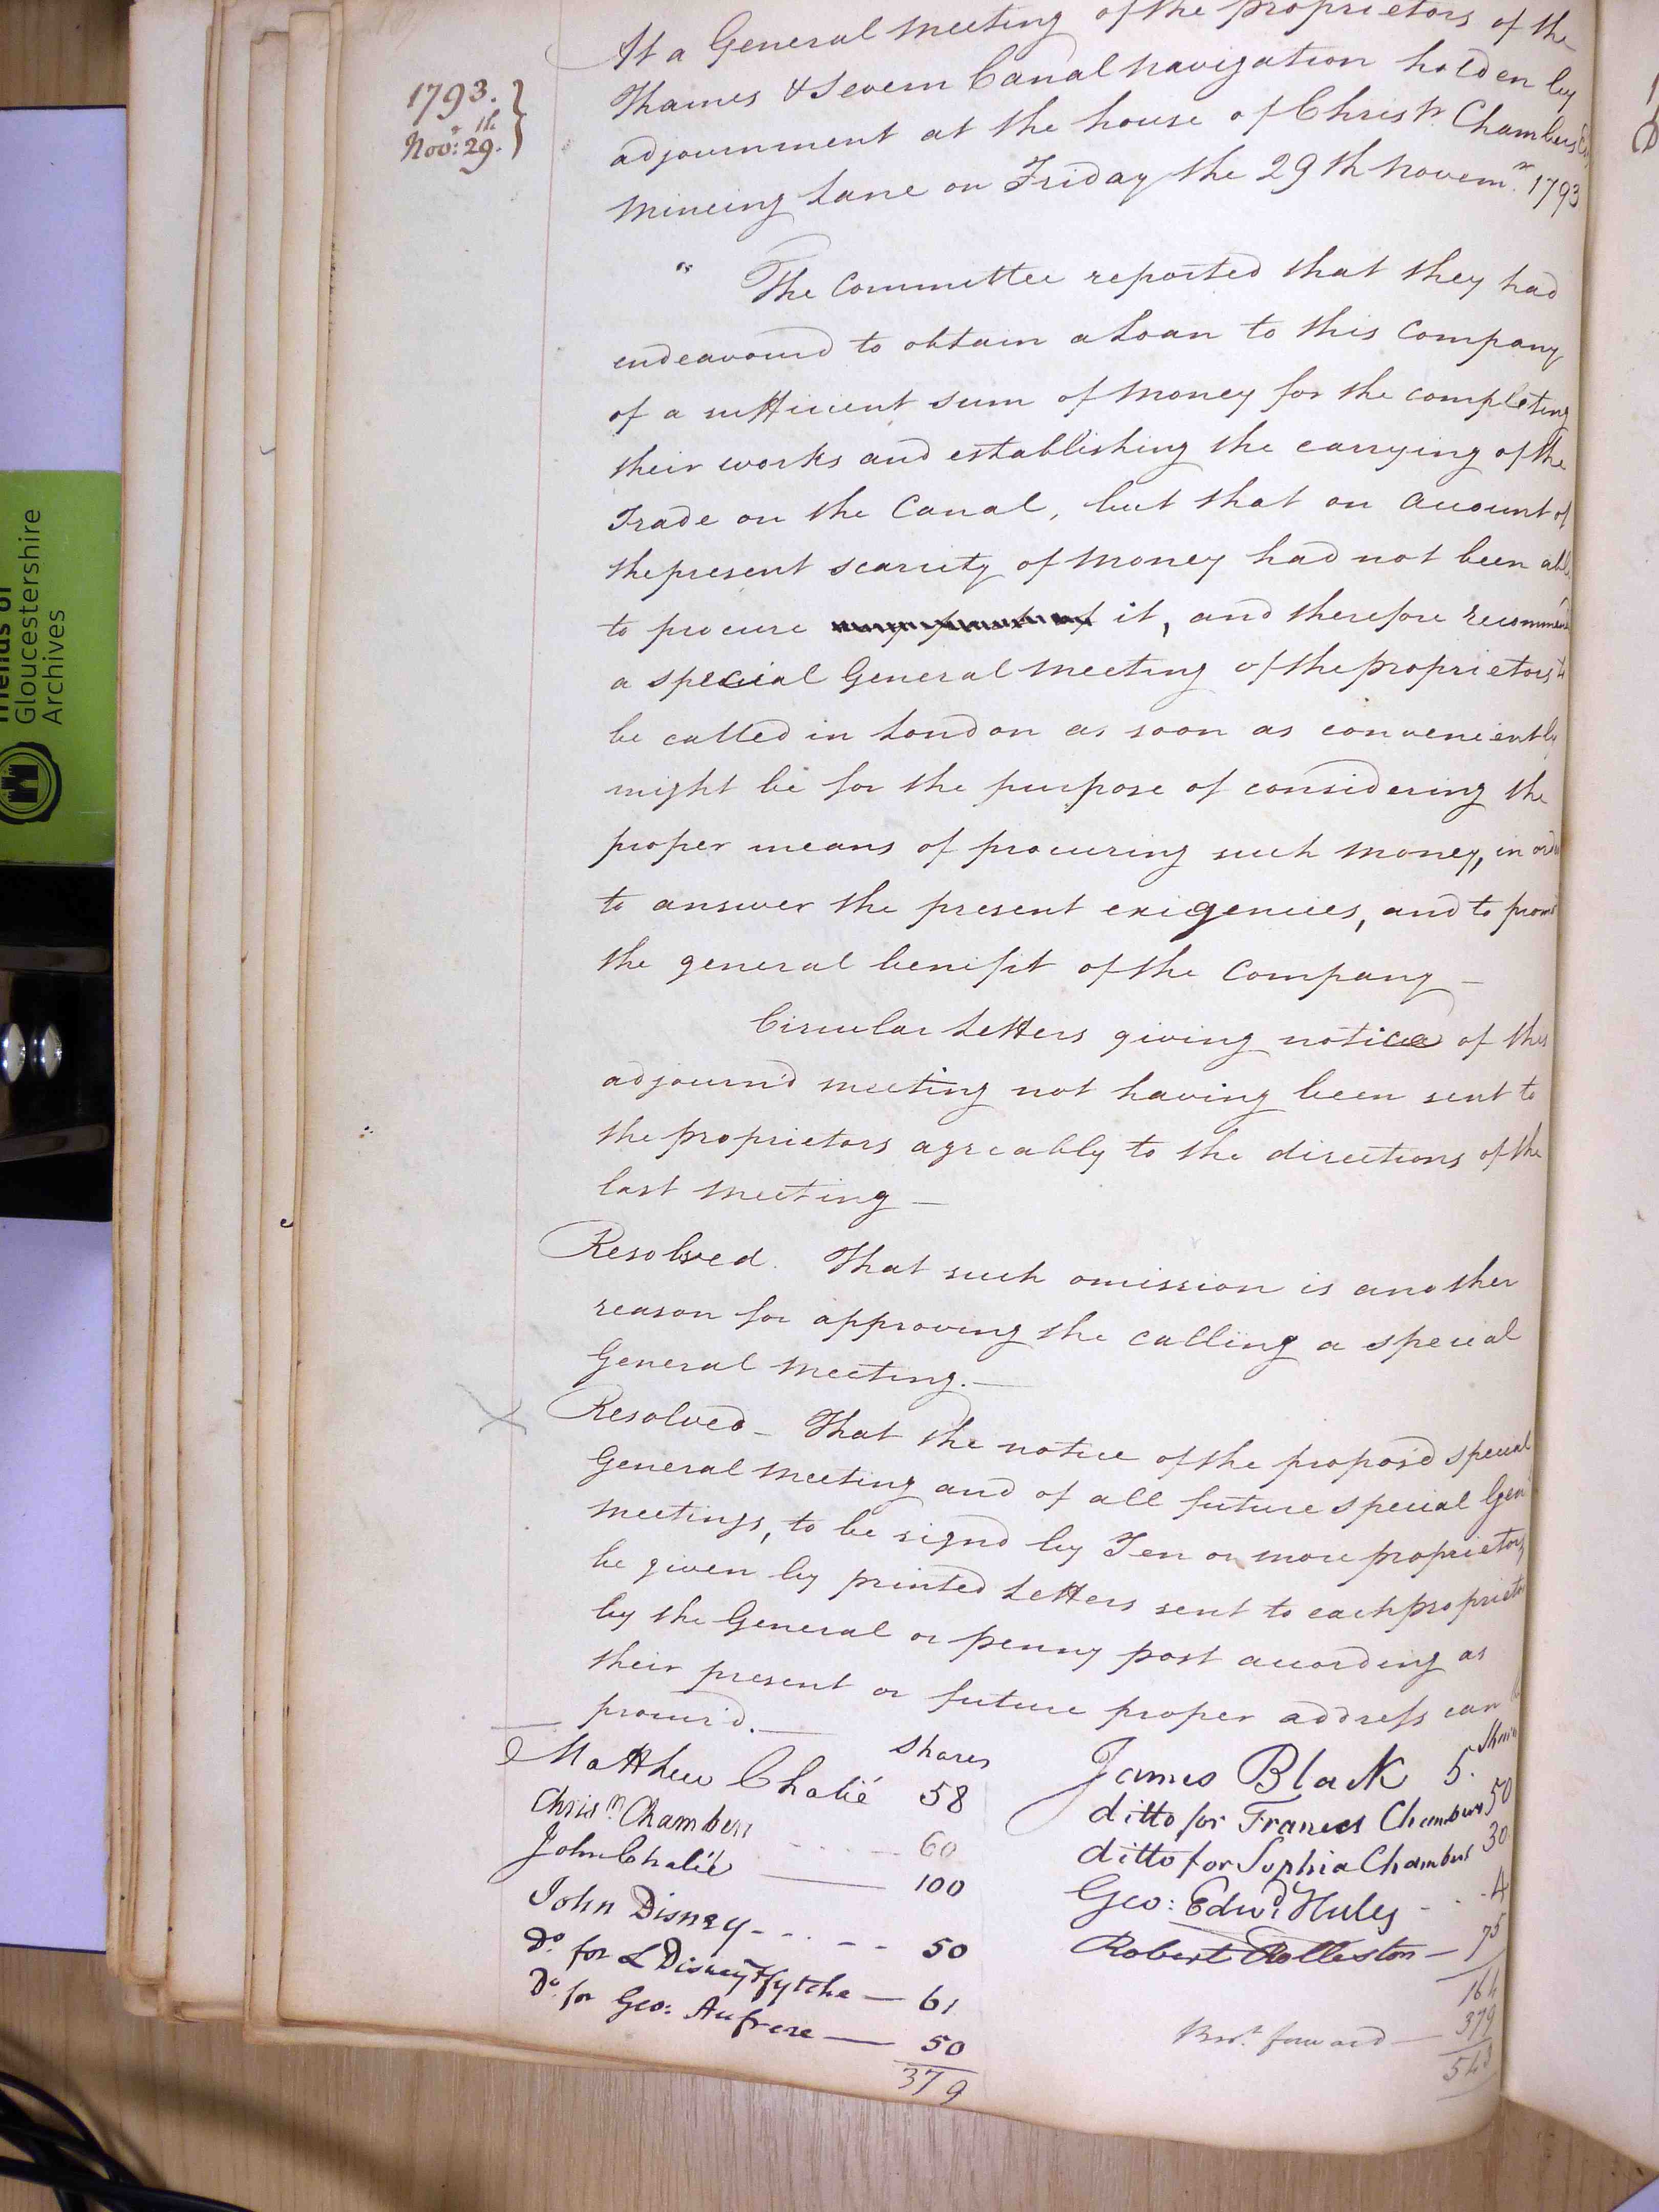 At a General meeting of the proprietors of the
Thames & Severn Canal navigation holden by
adjournment at the house of Christr. Chambers Esqr
mincing Lane on Friday the 29th novemr. 1793
1793.
Novr: 29th.
" The Committee reported that they had
endeavourd to obtain a Loan to this Company
of a sufficient sum of money for the completing
their works and establishing the carrying of the
Trade on the Canal, but that on account of
the present scarcity of money had not been able
to procure it, and therefore recommend
a special General meeting of the proprietors to
be called in London as soon as conveniently
might be for the purpose of considering the
proper means of procuring such money, in order
to answer the present exigencies, and to promote
the general benifit of the Company —
Circular Letters giving notice of this
adjourn'd meeting not having been sent to
the proprietors agreably to the directions of the
last meeting —
Resolved. That such omission is another
reason for approving the calling a special
General meeting. —
Resolved — That the notice of the propos'd special
General meeting and of all future special Genl
meetings, to be signd by Ten or more proprietors
be given by printed Letters sent to each proprietor
by the General or penny post according as
their present or future proper address can be
procur'd. —
Shares
Matthew Chalié 58
Chrisr. Chambers 60
John Chalié — 100
John Disney - - - - 50
Do. for L Disney Ffytche — 61
Do. for Geo: Aufrere — 50
379
Shares
James Black 5.
ditto for Frances Chambers 50
ditto for Sophia Chambers 30
Geo: Edwd. - - 4
Robert Rolleston — 75
164
Brot. forward — 379
543
Friends of
Gloucestershire
Archives